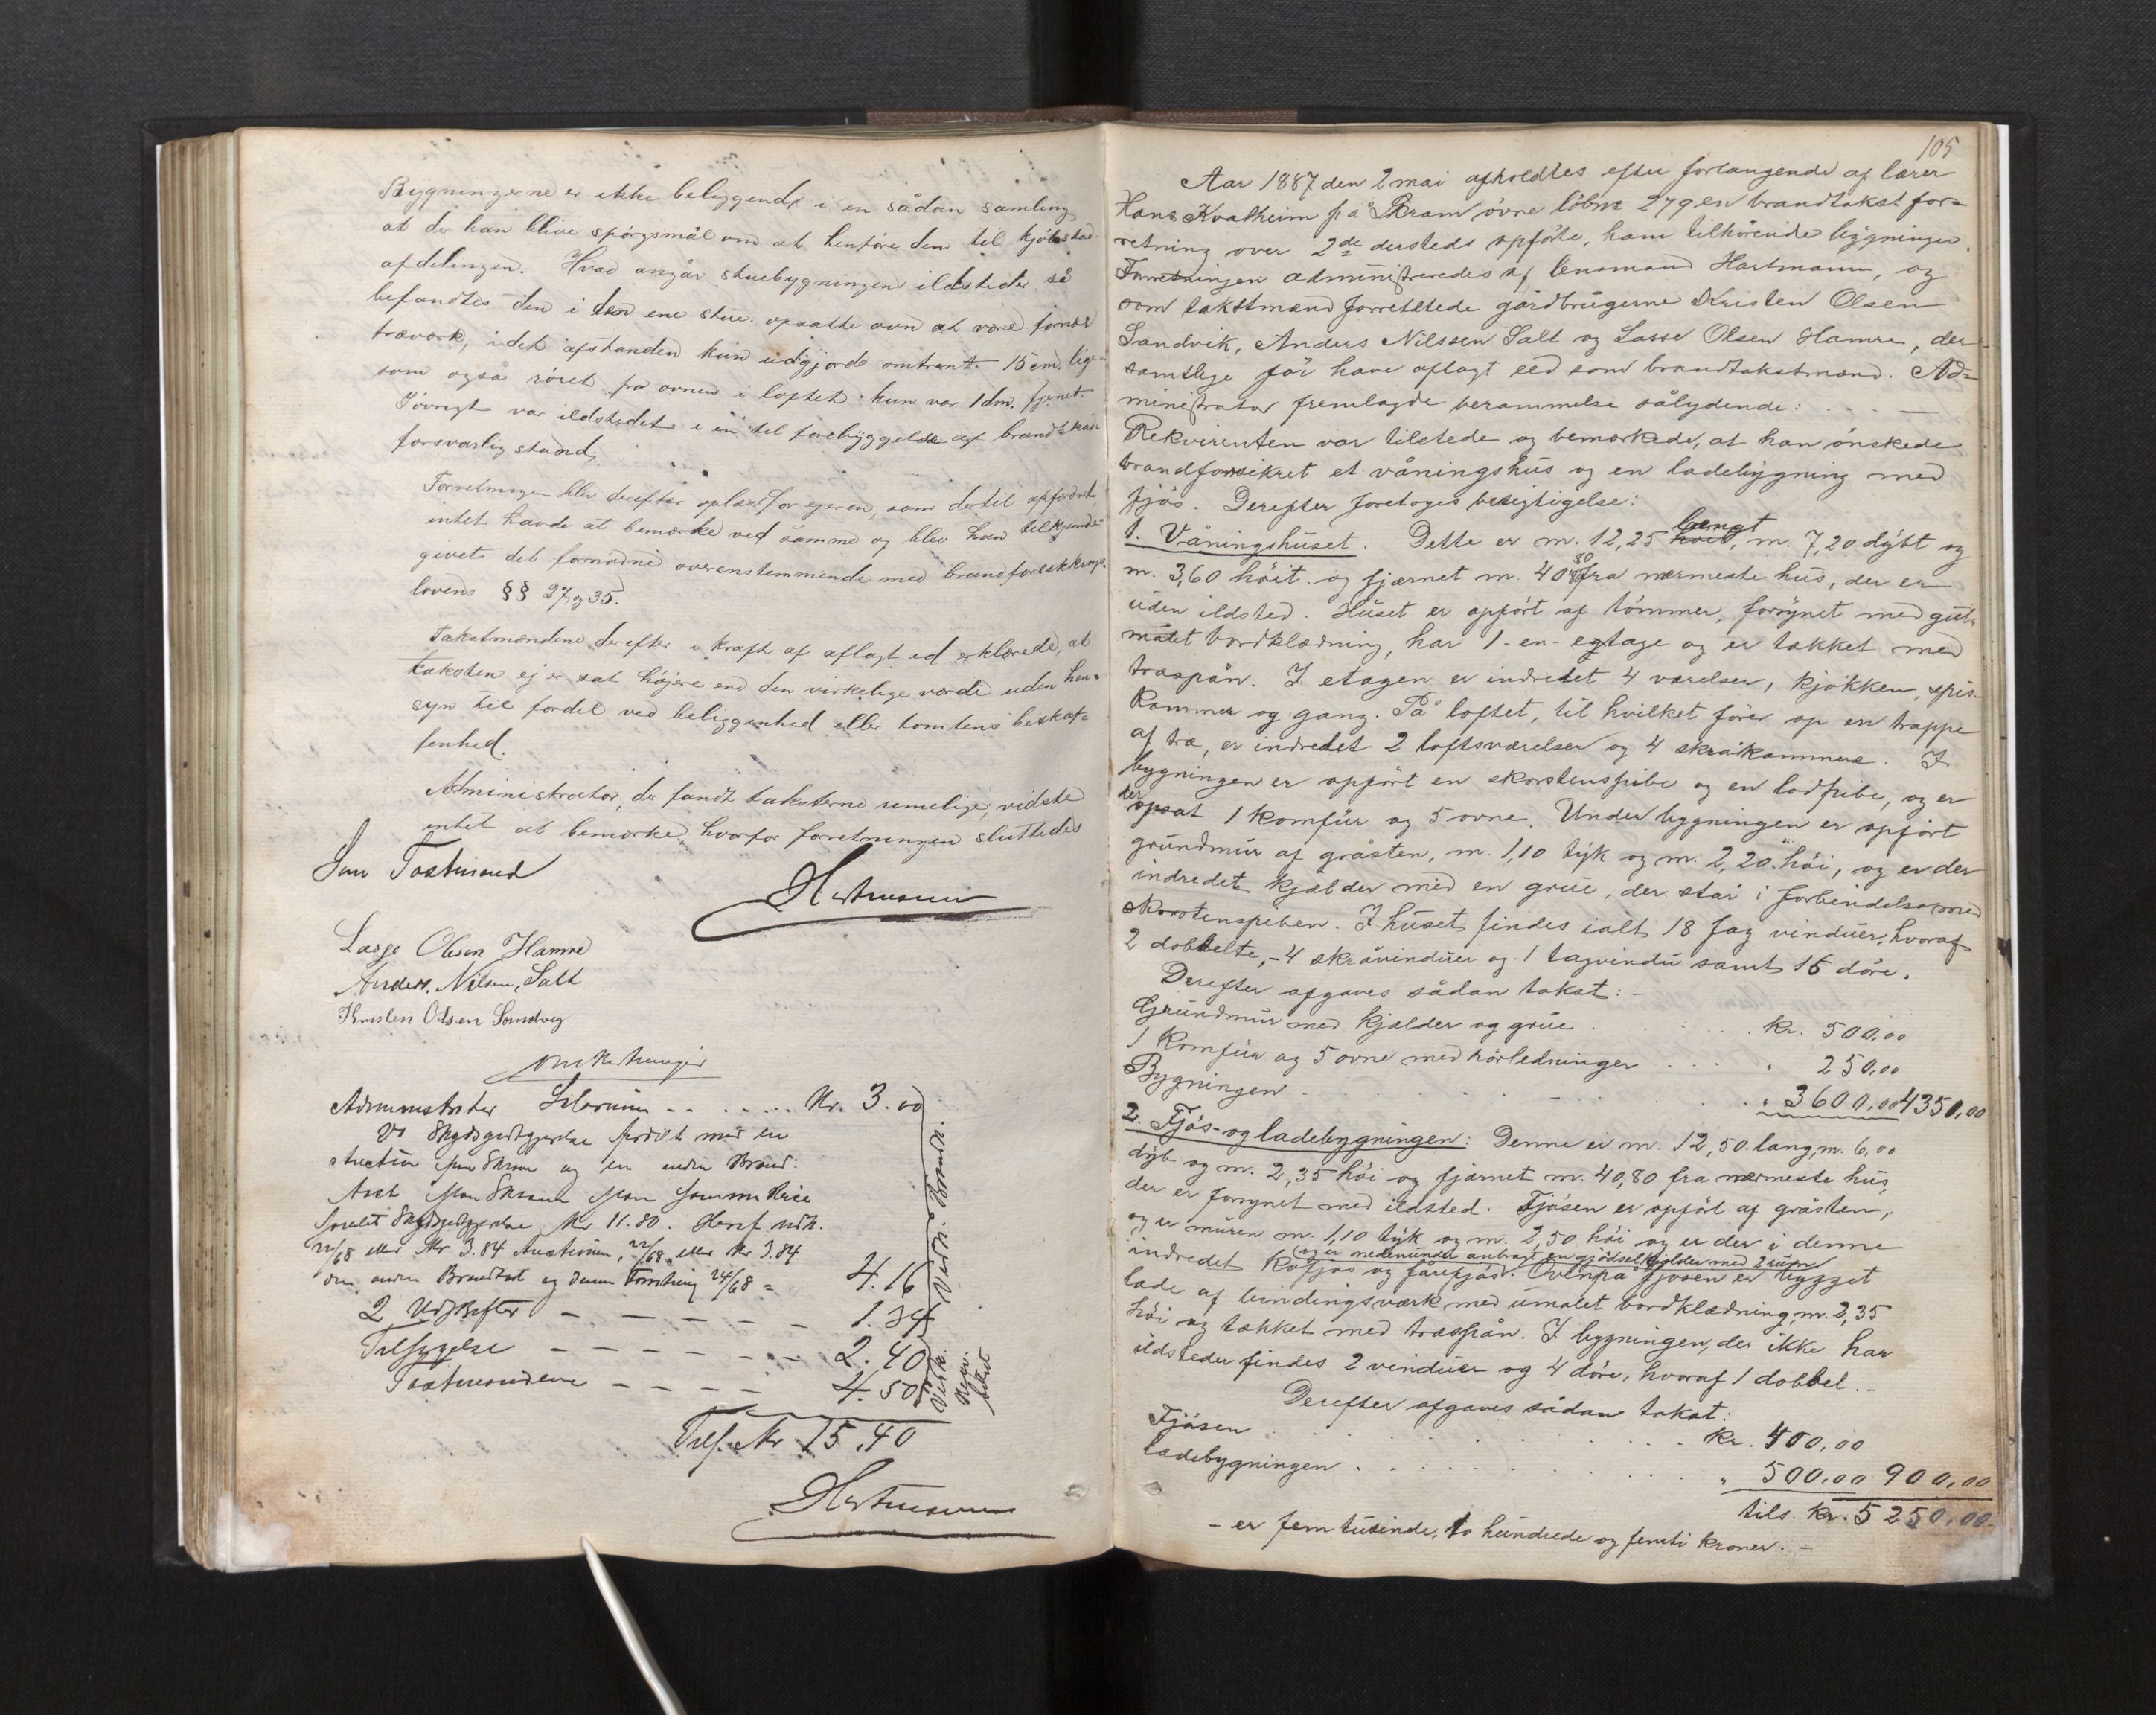 Bygningerne er ikke beliggende i en sådan samling
at der kan blive spörgsmål om at henföre dem til kjöbstad-
afdelingen. Hvad angår stuebygningens ildsteder så
befandtes den i den ene stue opsatte ovn at være fornær
træværk, idet afstanden kun udgjorde omtrent 15 cm. lige-
som også röret fra ovnen i loftet kun var 1 dm. fjernet.
Iövrigt var ildstedet i en til forebyggelse af brandskade
forsvarlig stand.
Forretningen blev derefter oplæst for ejeren, som dertil opfordret,
intet havde at bemærke ved samme og blev ham tilkjende-
givet det fornödne overenstemmende med brandforsikrings-
lovens §§ 27 og 35.
Takstmændene derefter i kraft af aflagt ed erklærede, at
taksten ej er sat höjere end den virkelige værdi uden hen-
syn til fordel ved beliggenhed eller tomtens beskaf-
fenhed.
Administrator, der fandt taksterne rimelige, vidste
intet at bemærke, hvorfor forretningen sluttedes
Som Taxtmænd
Hartmann
Lasse Olsen Hamre
Anders. Nilsen, Salt
Kristen Olsen Sandvig
Omkostninger
Administrator Salarium - - . . . . . Kr. 3.00
Do Skydsgodtgjørelse fordelt med en
auction paa Skram og en anden Brand:
taxt paa Skram paa samme Reise
Samlet Skydsgodtgjørelse Kr 11.80. Heraf udk.
22/68 eller Kr 3.84 Auctionen, 22/68 eller Kr 3.84
den anden Brandtaxt og denne Forretning 24/68 = 4.16
2 Udskrifter — — — — — 1.34
Tilsigelse — — — — — 2.40
Taxtmændene — — — — 4.50
Tils. Kr 15.40
Hartmann
105
Aar 1887 den 2 mai afholdtes efter forlangende af lærer
Hans Kvalheim på Skram övre löbnr 279 en brandtakstfor-
retning over 2de dersteds opförte, ham tilhörende bygninger.
Forretningen administreredes af lensmand Hartmann, og
som takstmænd forrettede gårdbrugerne Kristen Olsen
Sandvik, Anders Nilssen Salt og Lasse Olsen Hamre, der
samtlige för have aflagt eed som brandtakstmænd. Ad-
ministrator fremlagde berammelse sålydende: . . . . —
Rekvirenten var tilstede og bemærkede, at han önskede
brandforsikret et våningshus og en ladebygning med
fjös. Derefter foretoges besigtigelse:
1. Våningshuset. Dette er m. 12,25 höit langt, m. 7,20 dybt og
m. 3,60 höit og fjærnet m. 40,80 fra nærmeste hus, der er
uden ildsted. Huset er opfört af tömmer, forsynet med gul-
målet bordklædning, har 1-en-egtage og er tækket med
træspån. I etagen er indredet 4 værelser, kjökken, spis-
kammer og gang. På loftet, til hvilket förer op en trappe
af træ, er indredet 2 loftsværelser og 4 skråkammere. I
bygningen er opfört en skorstenspibe og en lodpibe, og er
der opsat 1 komfür og 5 ovne. Under bygningen er opfört
grundmur af gråsten, m. 1,10 tyk og m. 2,20 höi, og er der
indredet kjælder med en grue, der står i forbindelse med
skorstenspiben. I huset findes ialt 18 fag vinduer, hvoraf
2 dobbelte, - 4 skråvinduer og 1 tagvindu samt 15 döre.
Derefter afgaves sådan takst: -
Grundmur med kjælder og grue . . . . . . kr. 500,00
1 komfür og 5 ovne med rörledninger . . . . " 250,00
Bygningen . . . . . . . . . . " 3600,00 4350,00
2. Fjös- og ladebygningen: Denne er m. 12,50 lang, m. 6,00
dyb og m. 2,35 höi og fjærnet m. 40,80 fra nærmeste hus,
der er forsynet med ildsted. Fjösen er opfört af gråsten,
og er muren m. 1,10 tyk og m. 2,50 höi og er der i denne
indredet kofjös og fårefjös, og er nedenunder anbragt en gjödselkjelder med 2 rum. Ovenpå fjösen er bygget
lade af bindingsværk med umalet bordklædning, m. 2,35
höi og tækket med træspån. I bygningen, der ikke har
ildsteder findes 2 vinduer og 4 döre, hvoraf 1 dobbel. -
Derefter afgaves sådan takst:
Fjösen . . . . . . . . . . kr. 400,00
Ladebygningen . . . . . . . . . " 500,00 900,00
tils. kr. 5250,00.
- er fem tusinde, to hundrede og femti kroner. -